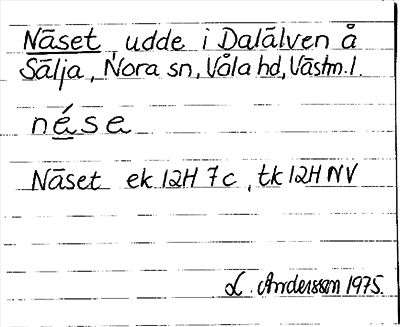 Näset, udde i Dalälven å
Sälja, Nora sn, Våla hd, Västm. l.
nése
Näset ek 12H 7c, tk 12H NV
L. Andersson 1975.